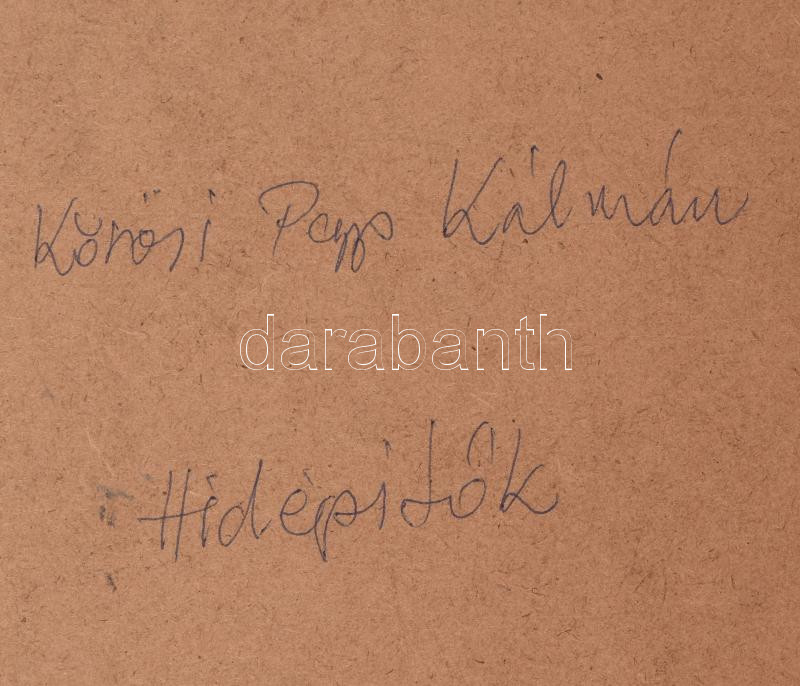 Kőrösi Papp Kálmán
darabanth
Hidépitők